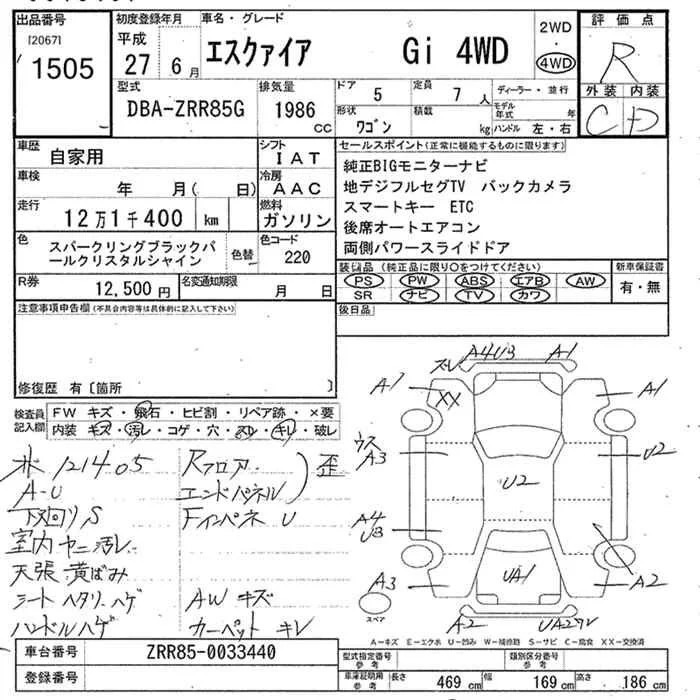 出品番号
[2067]
1505
初度登録年月
平成
27 6月
車名・グレード
エスクァイア Gi 4WD
2WD
・
4WD
評価点
R
外装 内装
C D
型式
DBA-ZRR85G
排気量
1986
CC
ドア
5
定員
7 人
形状
ワゴン
積載
kg
ディーラー・並行
モデル年式 年
ハンドル 左・右
車歴
自家用
シフト
IAT
車検
年 月( 日)
冷房
AAC
走行
12万1千400 km
燃料
ガソリン
色
スパークリングブラックパ
ールクリスタルシャイン
色替
色コード
220
R券
12,500円
名変通知期限
月 日
セールスポイント(正常に機能するものに限ります)
純正BIGモニターナビ
地デジフルセグTV バックカメラ
スマートキー ETC
後席オートエアコン
両側パワースライドドア
装備品(純正品に限り○をつけてください)
PS PW ABS エアB AW
SR ナビ TV カワ
新車保証書
有・無
後日品
注意事項申告欄(不具合内容等は具体的に記入して下さい)
修復歴 有〔箇所 〕
検査員
記入欄
FW キズ・飛石・ヒビ割・リペア跡・×要
内装 キズ・汚レ・コゲ・穴・スレ・キレ・破レ
メ 121405
A-U
下廻りS
室内ヤニ汚レ
天張黄ばみ
シートヘタリ・ハゲ
ハンドルハゲ
Rフロア
エンドパネル
) 歪
Fインパネ U
AW キズ
カーペット キレ
ズレ A4U3 A1
A1
XX
A1
ウス
A3
U2
U2
A4
U3
A3
UA1
A2
A2
スペア
A-キズ E-エクボ U-凹み W-補修跡 S-サビ C-腐食 XX-交換済
車台番号
ZRR85-0033440
登録番号
型式指定番号
参考
類別区分番号
参考
車庫証明用
参考
長さ
469 cm
幅
169 cm
高さ
186 cm